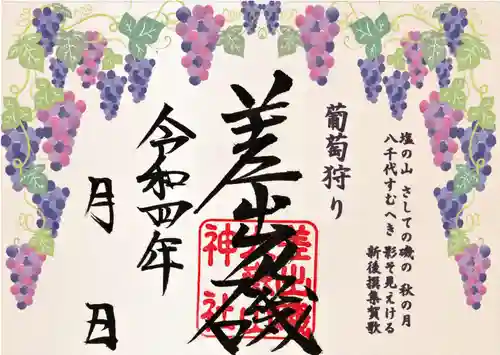 塩の山 さしての磯の 秋の月
八千代すむへき 影そ見えける
新後撰集賀歌
葡萄狩り
差出乃磯
令和四年
月 日